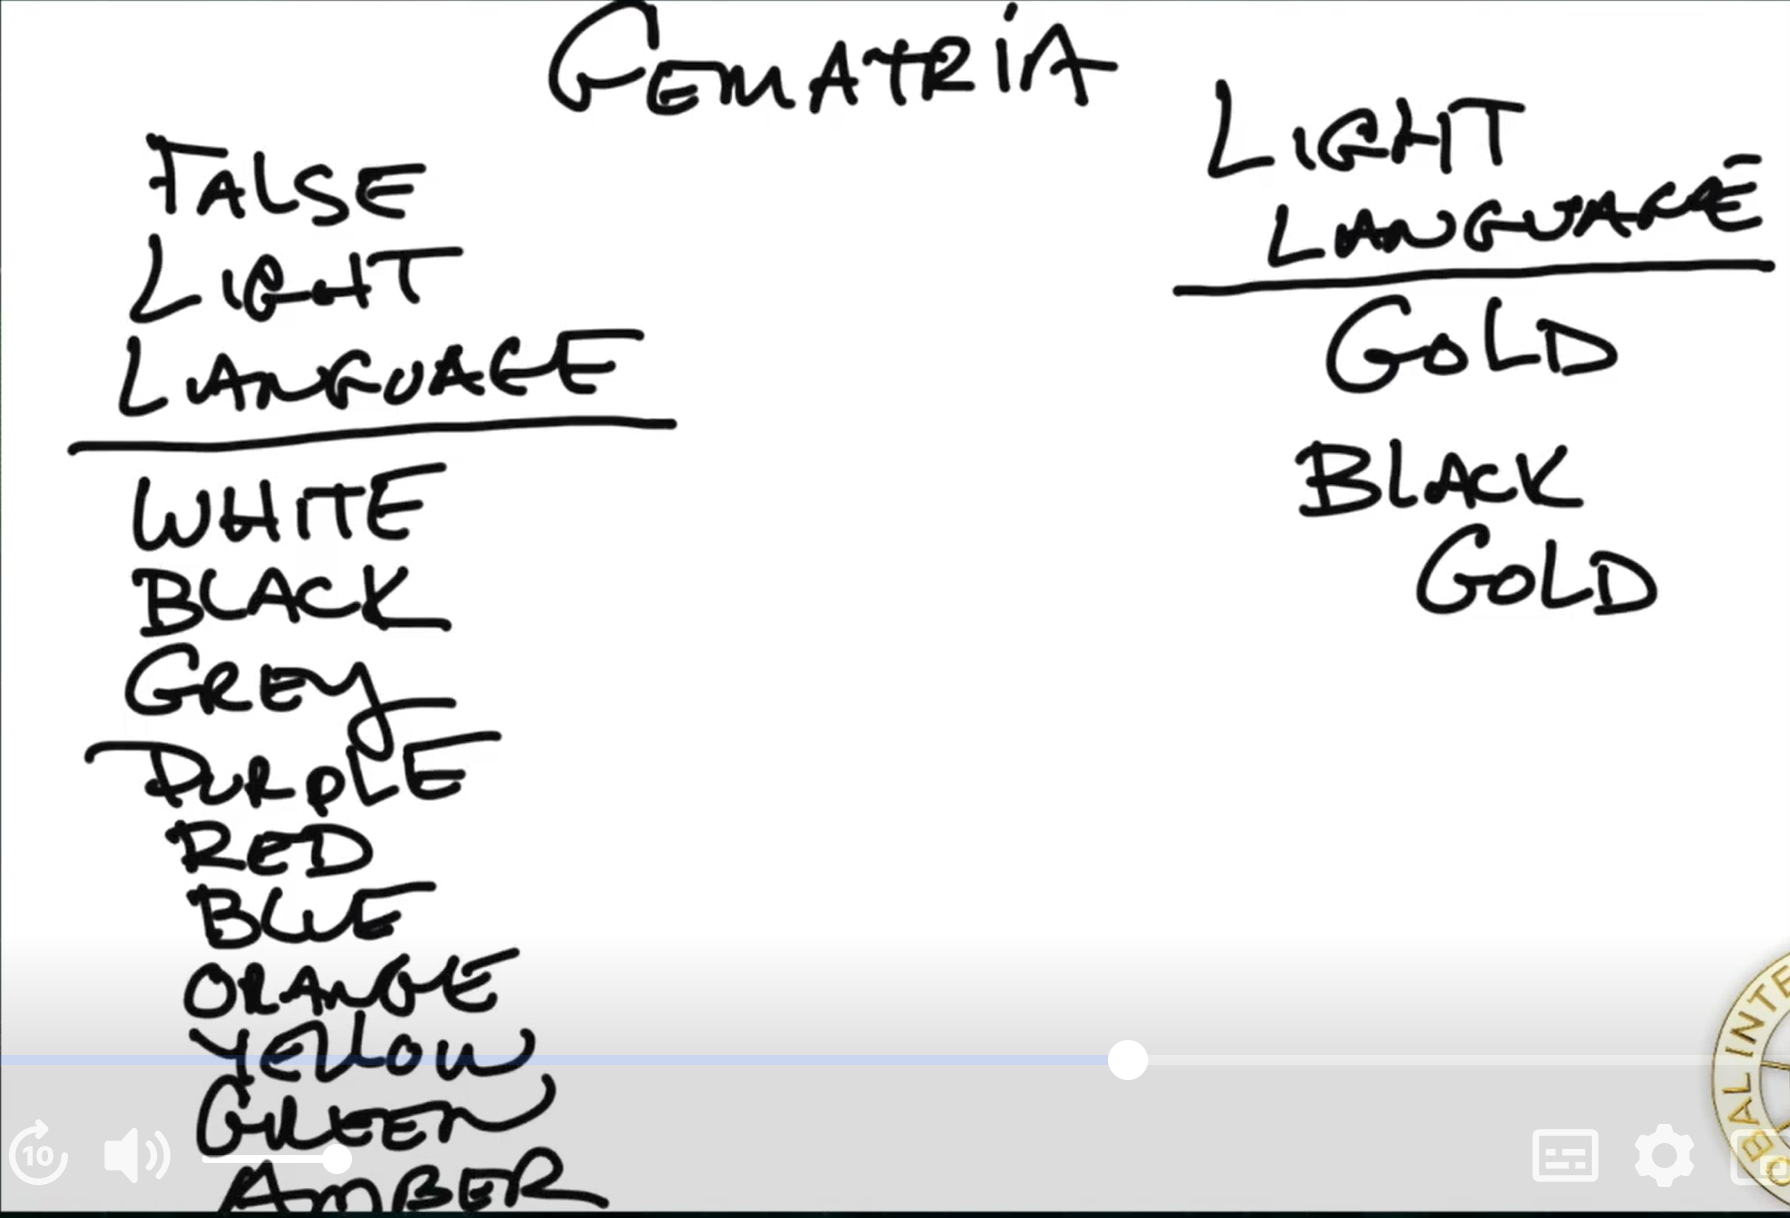 GEMATRIA
FALSE
LIGHT
LANGUAGE
WHITE
BLACK
GREY
PURPLE
RED
BLUE
ORANGE
YELLOW
GREEN
AMBER
LIGHT
LANGUAGE
GOLD
BLACK
GOLD
10
BAL INTE